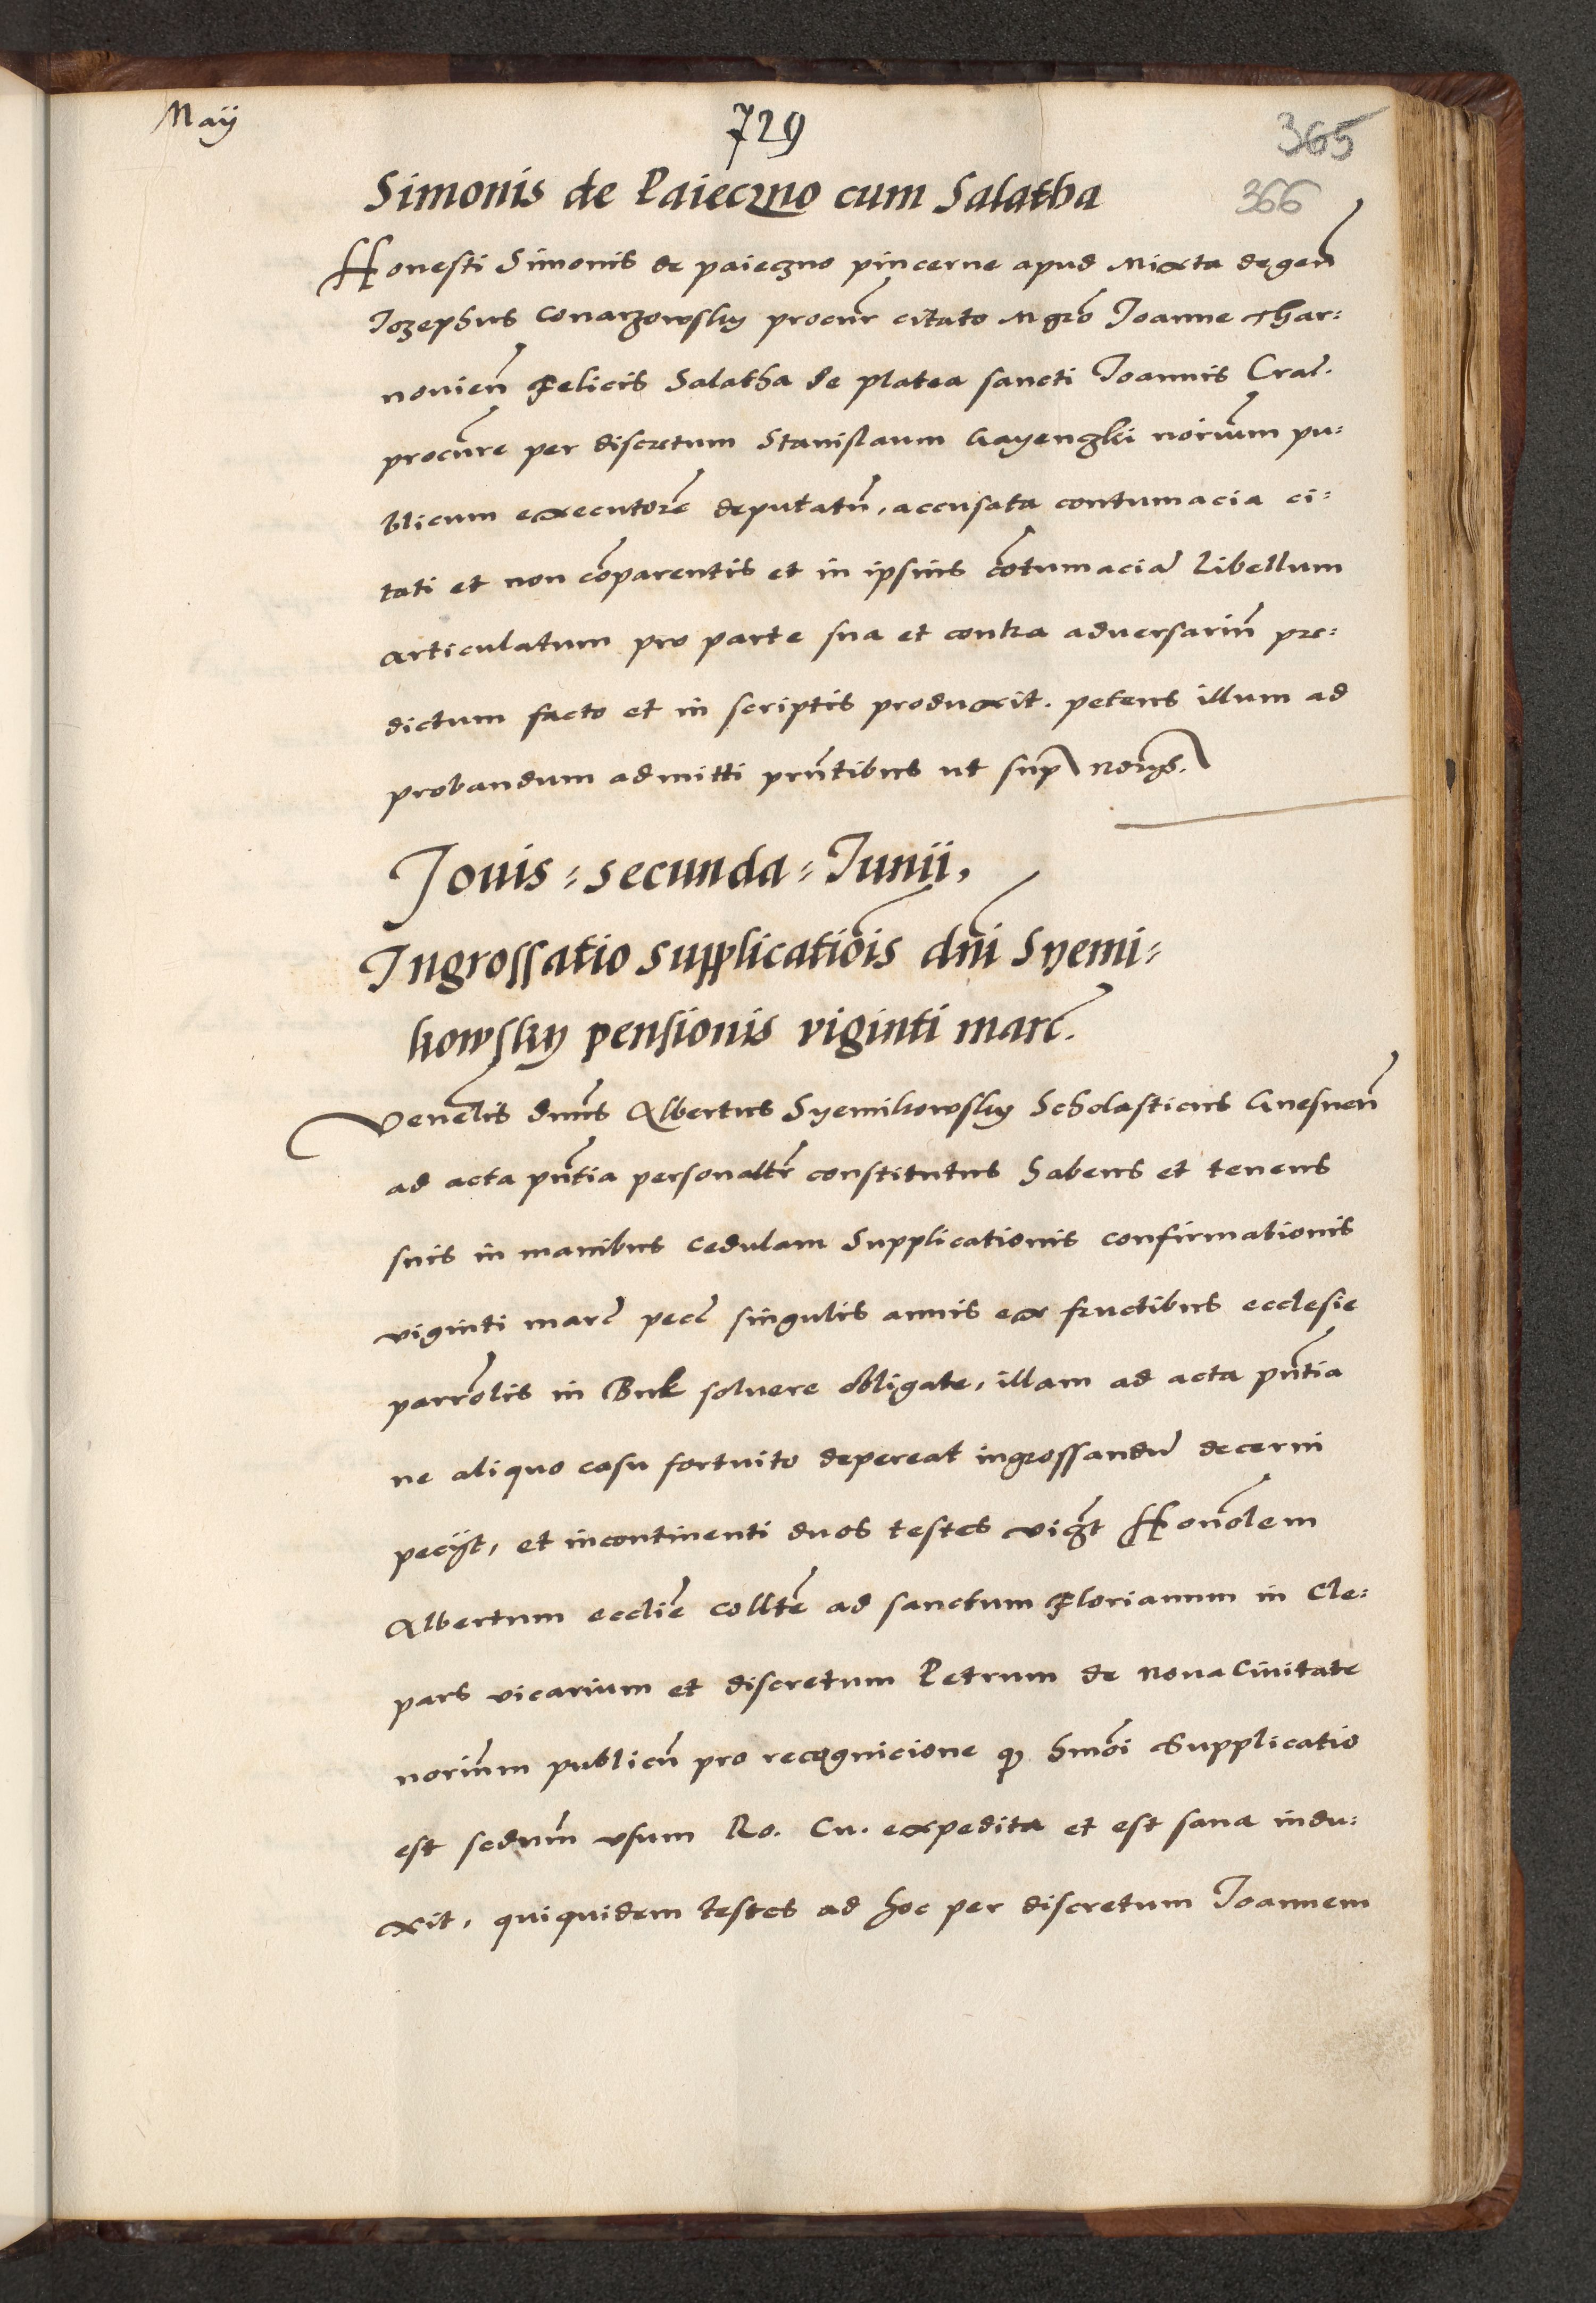 Maij
729
365
366
Simonis de Paieczno cum Salatha
Honesti Simonis de paieczno pincerne apud Mixta degeñ
Jozephus Conarzowsky procur̃ citato Mgrõ Joanne Thar:
novieñ Felicis Salatha de platea sancti Joannis Crac̃.
procur̃e per discretum Stanislaum Gayenzki noriũm pu:
blicum executorẽ deputatũ, accusata contumacia ci:
tati et non cõparentis et in ipsius cõtumaciã Libellum
articulatum pro parte sua et contra adversariũ pre:
dictum facto et in scriptis produxit. petens illum ad
probandum admitti pñtibus ut sup̃
Jovis = secunda = Junii,
Ingrossatio supplicatiõis dñi Syemi:
kowsky pensionis viginti marc̃.
Venelĩs dñus Albertus Syemikowsky Scholasticus Gnesneñ
ad acta pñtia personalĩtr constitutus habens et tenens
suis in manibus cedulam Supplicationis confirmationis
viginti marc̃ pecc̃ singulis annis ex fructibus ecclesie
parrõlis in Buk solvere obligate, illam ad acta pñtia
ne aliquo casu fortuito depereat ingrossandũ decerni
pecijt, et incontinenti duos testes vigt̃ Honõlem
Albertum ecclẽ collt̃e ad sanctum Florianum in Cle:
pars vicarium et discretum Petrum de Nova Civitate
noriũm publicũ pro recognicione qđ hmõi Supplicatio
est sedum̃ usum Ro. Cu. expedita et est sana indu:
xit, quiquidem testes ad hoc per discretum Joannem